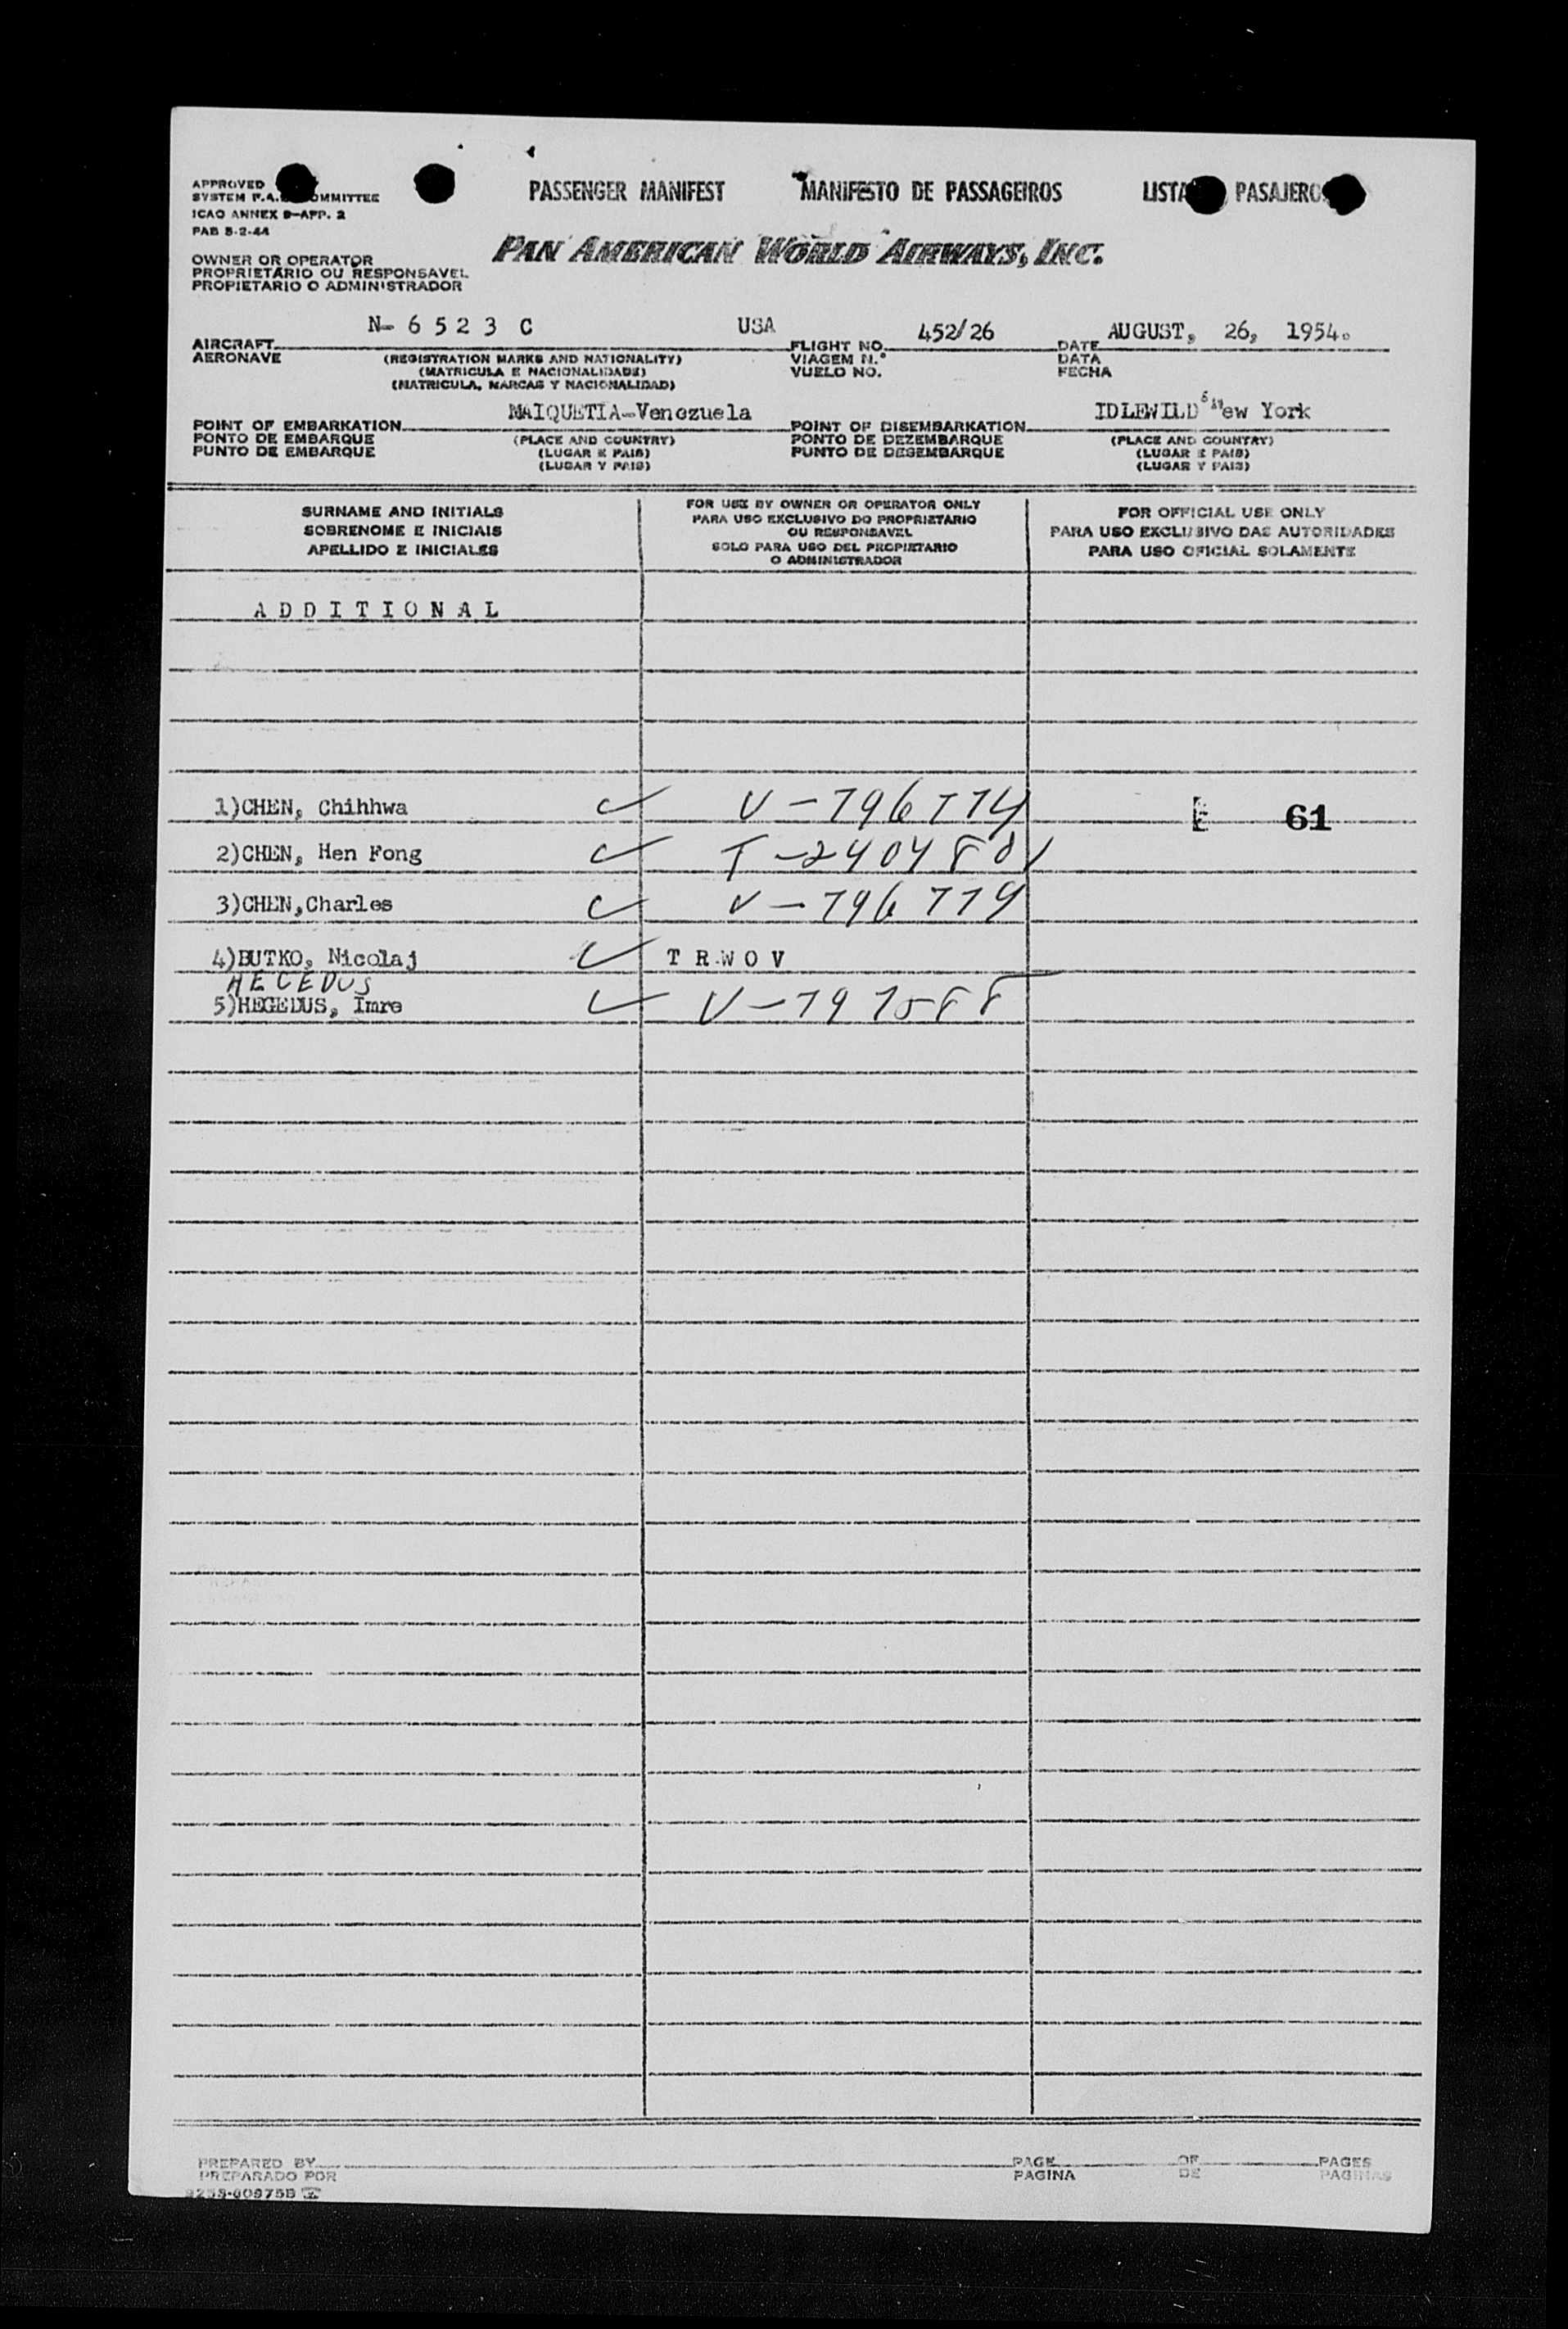 APPROVED
SYSTEM F.A. COMMITTEE
ICAO ANNEX 9-APP. 2
PAB 5-2-44
PASSENGER MANIFEST MANIFESTO DE PASSAGEIROS LISTA PASAJEROS
PAN AMERICAN WORLD AIRWAYS, INC.
OWNER OR OPERATOR
PROPRIETÁRIO OU RESPONSAVEL
PROPIETARIO O ADMINISTRADOR
N- 6 5 2 3 C USA 452/26 AUGUST, 26, 1954.
AIRCRAFT FLIGHT NO. DATE
AERONAVE (REGISTRATION MARKS AND NATIONALITY) VIAGEM N.º DATA
(MATRICULA E NACIONALIDADE) VUELO NO. FECHA
(MATRICULA, MARCAS Y NACIONALIDAD)
MAIQUETIA-Venezuela IDLEWILD New York
POINT OF EMBARKATION POINT OF DISEMBARKATION
PONTO DE EMBARQUE (PLACE AND COUNTRY) PONTO DE DEZEMBARQUE (PLACE AND COUNTRY)
PUNTO DE EMBARQUE (LUGAR E PAIS) PUNTO DE DESEMBARQUE (LUGAR E PAIS)
(LUGAR Y PAIS) (LUGAR Y PAIS)
SURNAME AND INITIALS FOR USE BY OWNER OR OPERATOR ONLY FOR OFFICIAL USE ONLY
SOBRENOME E INICIAIS PARA USO EXCLUSIVO DO PROPRIETARIO PARA USO EXCLUSIVO DAS AUTORIDADES
OU RESPONSAVEL
APELLIDO E INICIALES SOLO PARA USO DEL PROPIETARIO PARA USO OFICIAL SOLAMENTE
O ADMINISTRADOR
A D D I T I O N A L
1)CHEN, Chihhwa V-796774 E 61
2)CHEN, Hen Fong T-2404801
3)CHEN,Charles V-796779
4)BUTKO, Nicolaj T R W O V
HEGEDUS
5)HEGEDUS, Imre V-797588
PREPARED BY PAGE OF PAGES
PREPARADO POR PAGINA DE PAGINAS